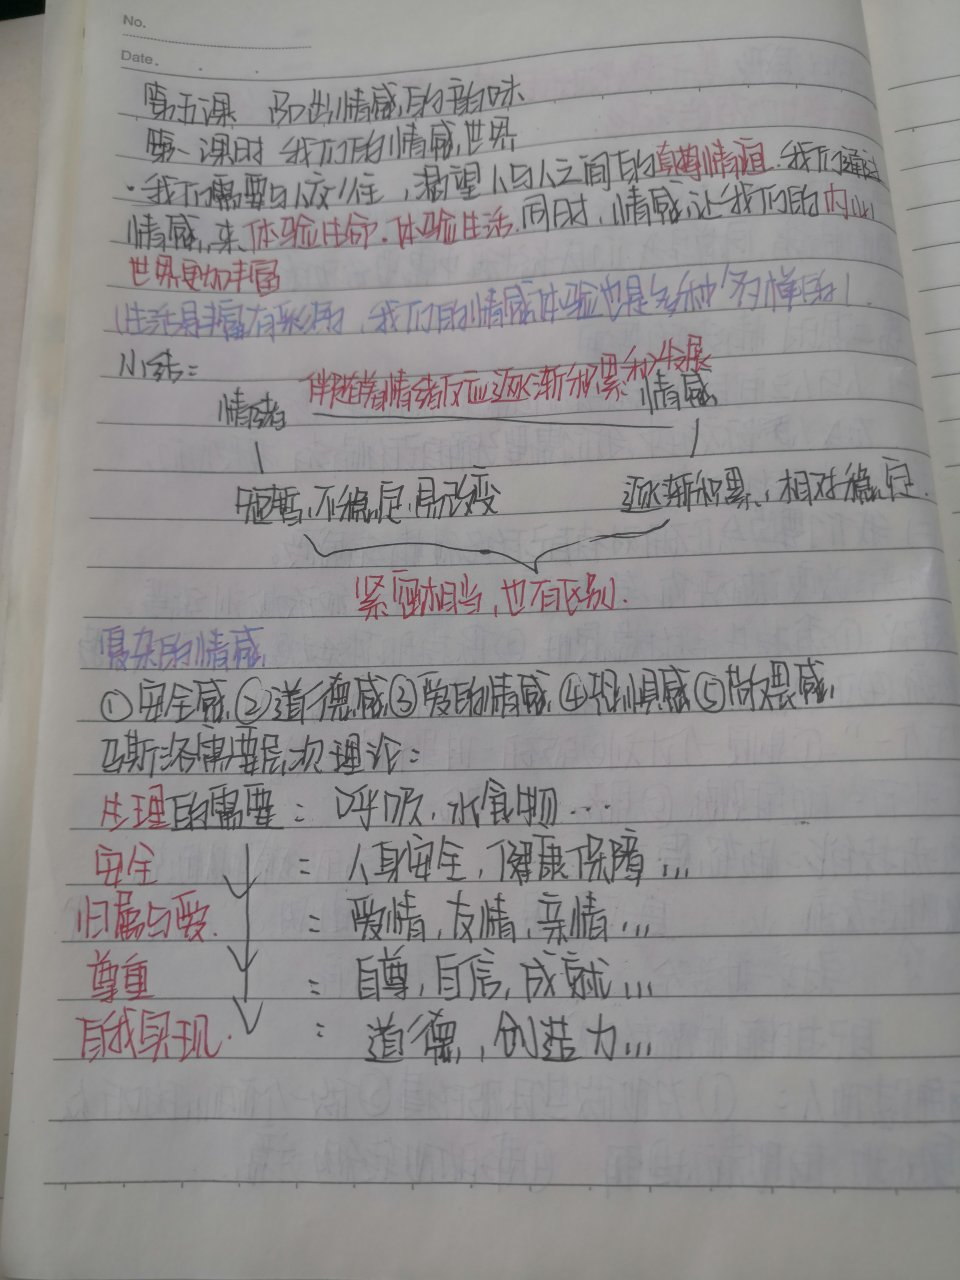 No.
Date.
第五课 品出情感的韵味
第一课时 我们的情感世界
·我们需要与人交往,渴望人与人之间的真尊情谊.我们通过
情感,来体验生命.体验生活.同时,情感,让我们的内心
世界更加丰富
(生活是丰富有彩的,我们的情感体验也是多种多样的)
小结:
伴随着情绪反应逐渐积累和发展
情绪 情感
短暂、不稳定,易改变 逐渐积累、相对稳定.
紧密相当,也有区别.
复杂的情感
①安全感②道德感③爱的情感④恐惧感⑤敬畏感
马斯洛需要层次理论:
生理的需要:呼吸、水食物...
安全 : 人身安全,健康保障...
归属与爱. : 爱情,友情,亲情...
尊重 : 自尊,自信,成就...
自我实现. : 道德,创造力...